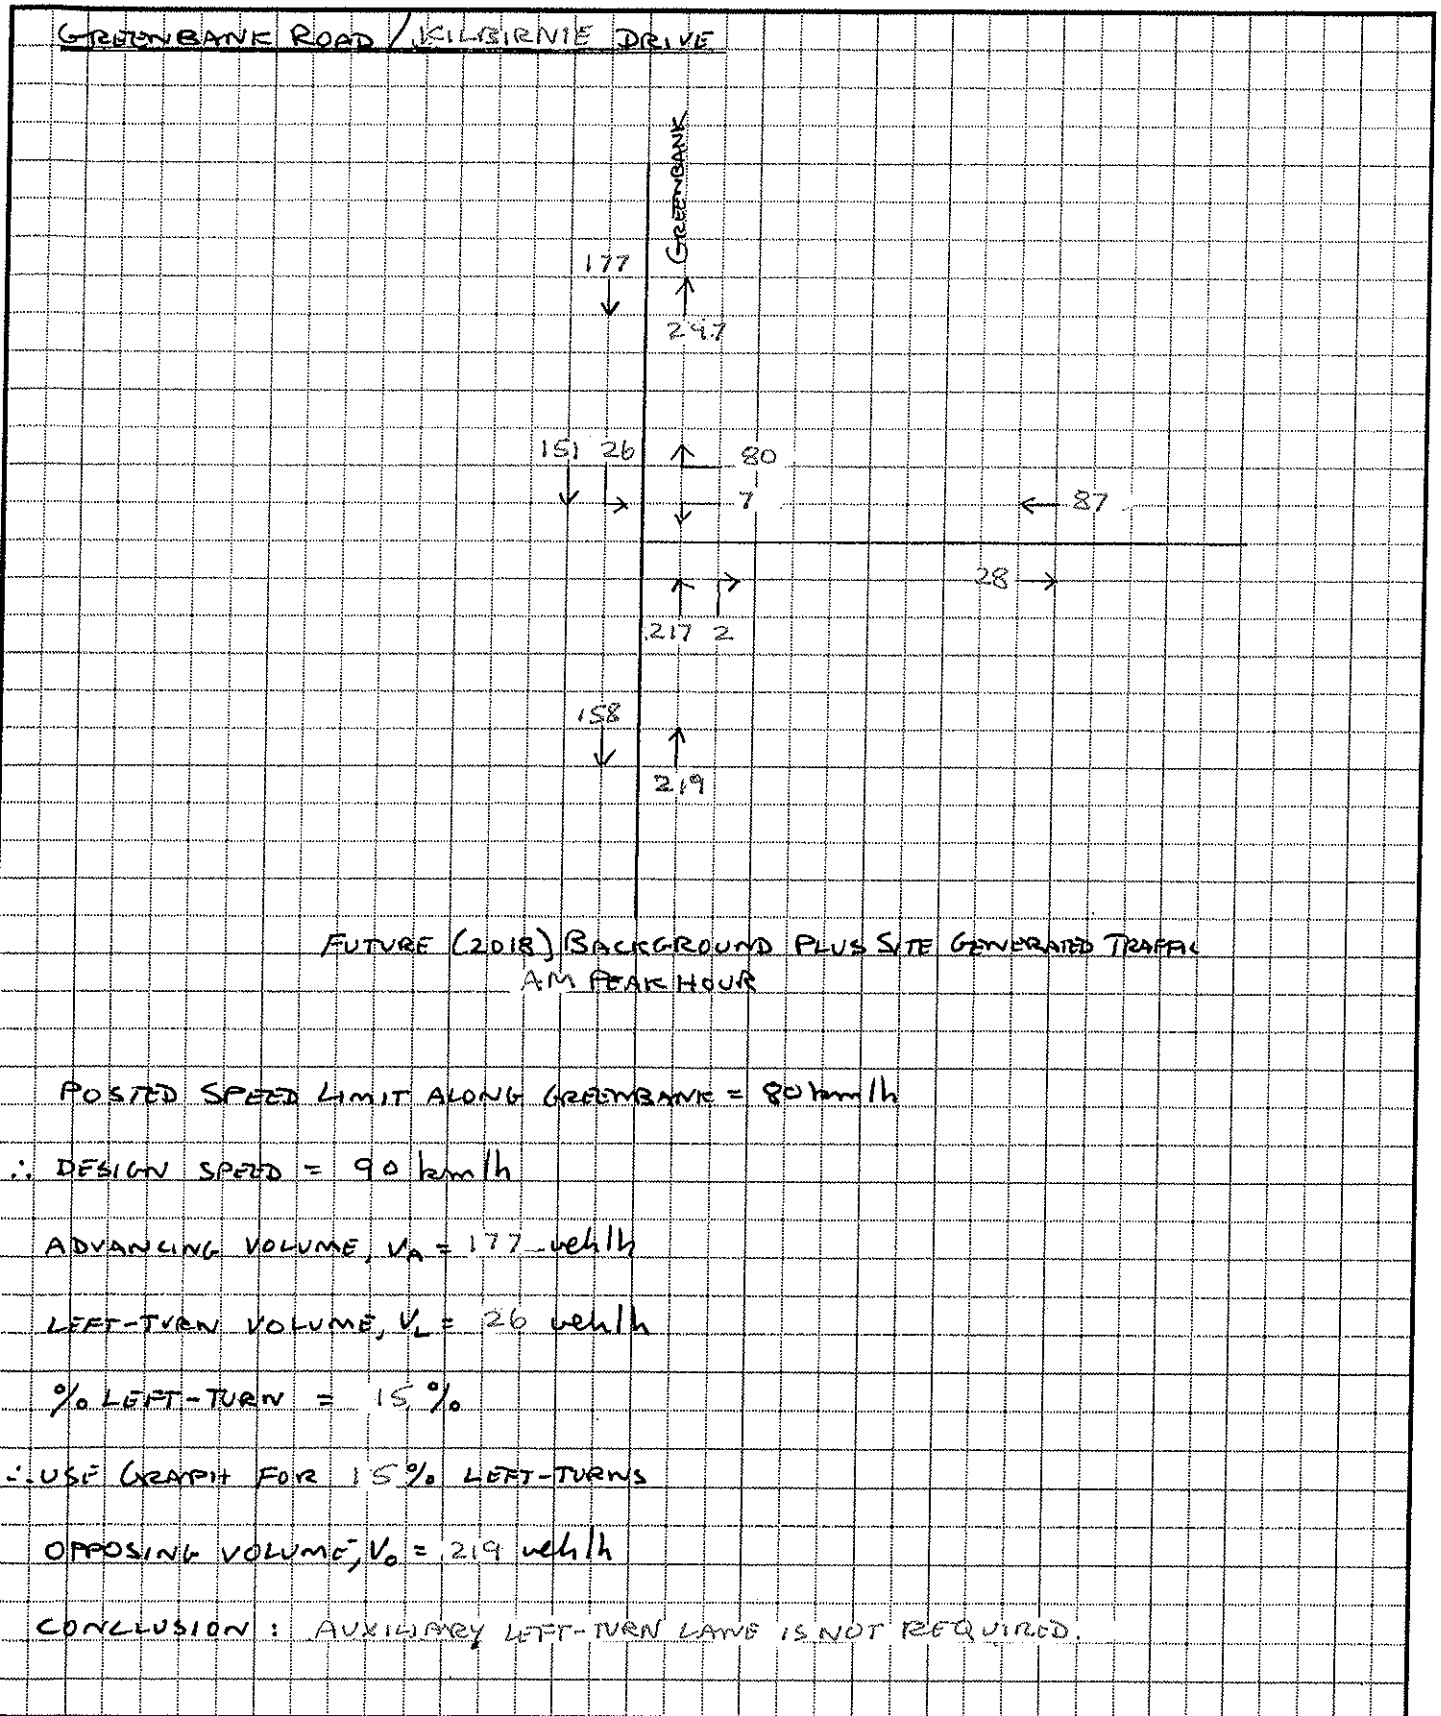 GREENBANK ROAD / KILBIRNIE DRIVE
GREENBANK
177
297
151 26
80
7
87
28
217 2
158
219
FUTURE (2018) BACKGROUND PLUS SITE GENERATED TRAFFIC
AM PEAK HOUR
POSTED SPEED LIMIT ALONG GREENBANK = 80 km/h
∴ DESIGN SPEED = 90 km/h
ADVANCING VOLUME, VA = 177 veh/h
LEFT-TURN VOLUME, VL = 26 veh/h
% LEFT-TURN = 15 %
∴ USE GRAPH FOR 15% LEFT-TURNS
OPPOSING VOLUME, Vo = 219 veh/h
CONCLUSION : AUXILIARY LEFT-TURN LANE IS NOT REQUIRED.